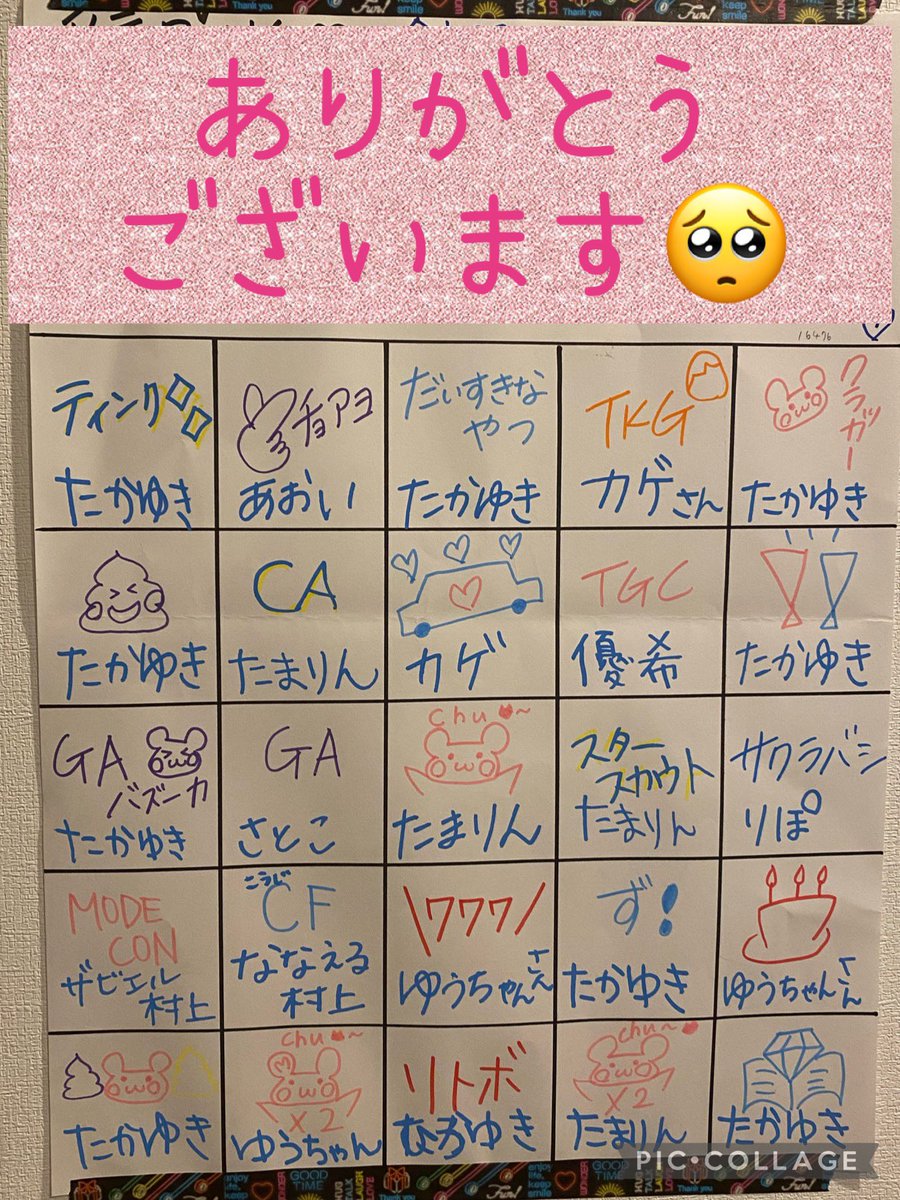 ありがとう
ございます
16476
ティンク
たかゆき
チョアヨ
あおい
だいすきな
やつ
たかゆき
TKG
カゲさん
クラッカー
たかゆき
たかゆき
CA
たまりん
カゲ
TGC
優希
たかゆき
GA
バズーカ
たかゆき
GA
さとこ
chu~
たまりん
スター
スカウト
たまりん
サクラバシ
りぽ
MODE
CON
ザビエル
村上
こうじ
CF
ななえる
村上
\777/
ゆうちゃんさん
ず!
たかゆき
ゆうちゃんさん
たかゆき
chu~
x2
ゆうちゃん
リトボ
たかゆき
chu~
x2
たまりん
たかゆき
PIC•COLLAGE